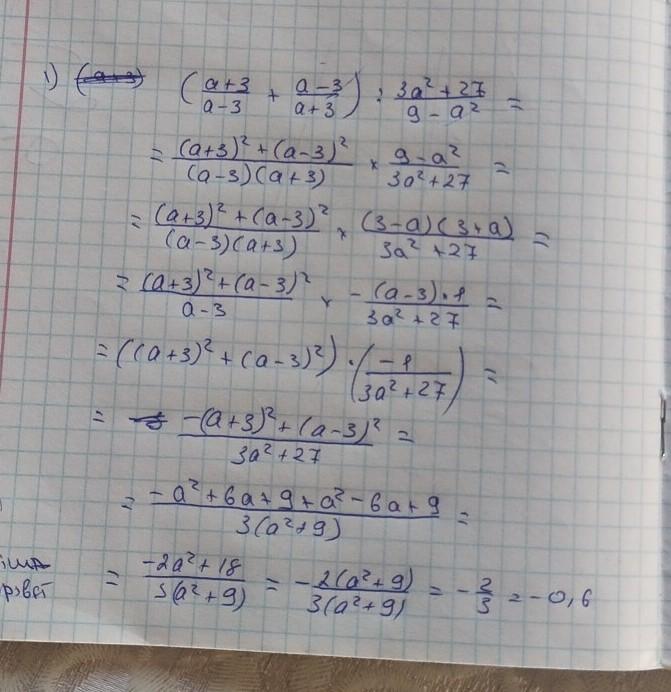 1) (a-3) (\frac{a+3}{a-3} + \frac{a-3}{a+3}) : \frac{3a^2+27}{9-a^2} =
= \frac{(a+3)^2+(a-3)^2}{(a-3)(a+3)} × \frac{9-a^2}{3a^2+27} =
= \frac{(a+3)^2+(a-3)^2}{(a-3)(a+3)} × \frac{(3-a)(3+a)}{3a^2+27} =
= \frac{(a+3)^2+(a-3)^2}{a-3} × \frac{-(a-3)·1}{3a^2+27} =
= ((a+3)^2+(a-3)^2) · (\frac{-1}{3a^2+27}) =
= \frac{-(a+3)^2+(a-3)^2}{3a^2+27} =
= \frac{-a^2+6a+9+a^2-6a+9}{3(a^2+9)} =
= \frac{-2a^2+18}{3(a^2+9)} = -\frac{2(a^2+9)}{3(a^2+9)} = -\frac{2}{3} = -0,6